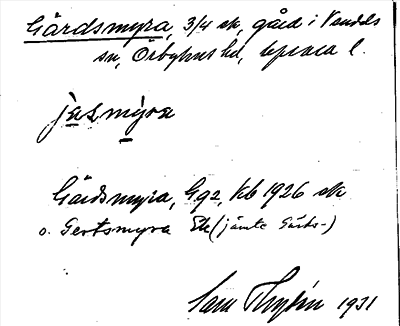 Gärdsmyra, 3/4 sk, gård i Vendels
sn, Örbyhus hd, Uppsala l.
jasmỳra
Gärdsmyra, Gga, kb 1926 sk
o. Gertsmyra Ek (jämte Gärts-)
Sam Thylin 1931